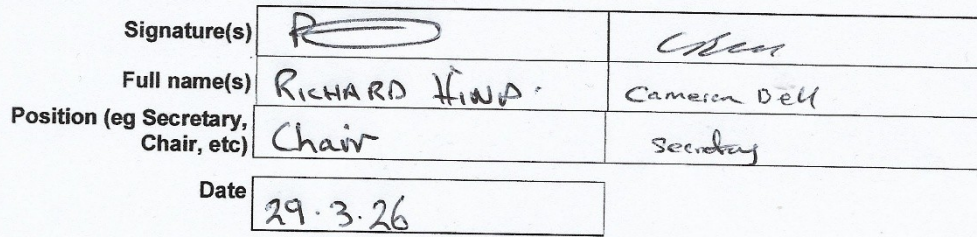 Signature(s)
Full name(s) RICHARD HIND. Cameron Dell
Position (eg Secretary,
Chair, etc) Chair Secretary
Date 29.3.26